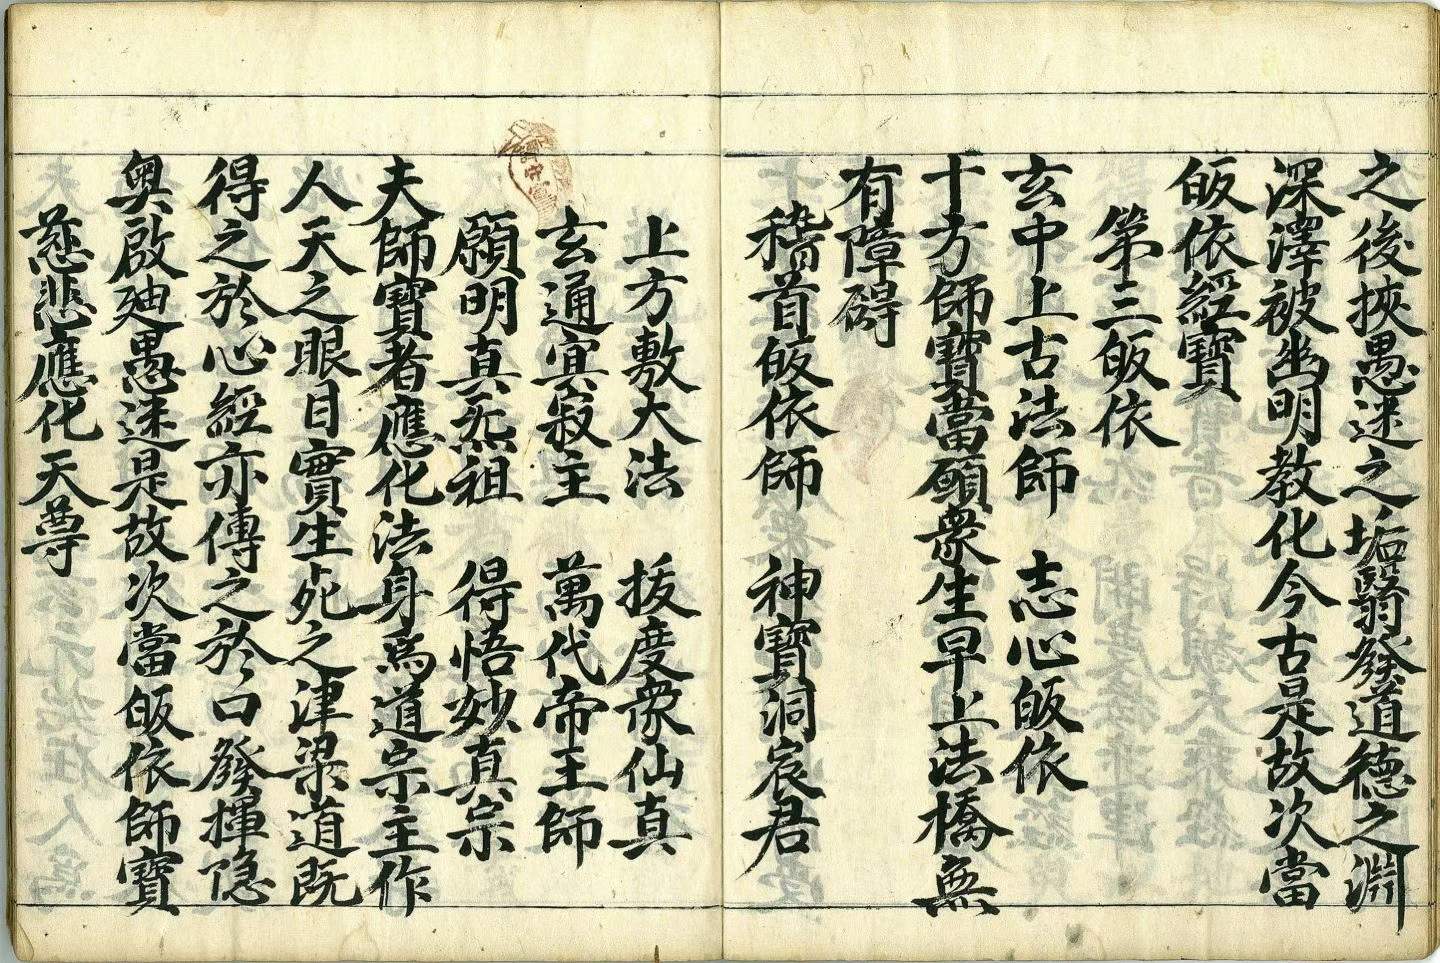 之後挾愚迷之垢翳發道德之淵
深澤被幽明教化今古是故次當
皈依經寳
第三皈依
玄中上古法師 志心皈依
十方師寳當願衆生早上法橋無
有障碍
稽首皈依師 神寳洞宸君
上方敷大法 拔度衆仙真
玄通冥寂主 萬代帝王師
願明真炁祖 得悟妙真宗
夫師寳者應化法身爲道宗主作
人天之眼目實生死之津梁道既
得之於心經亦傳之於口發揮隐
奥啟迪愚迷是故次當皈依師寳
慈悲應化天尊